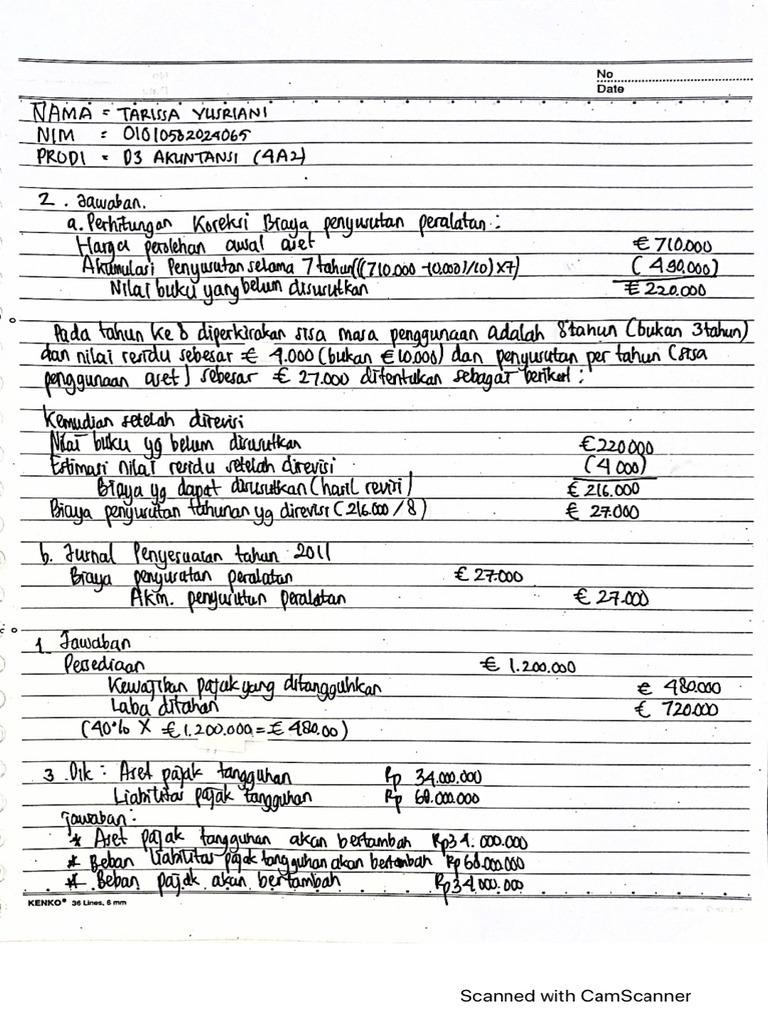 No
Date
NAMA = TARISSA YUSRIANI
NIM : 01010582024065
PRODI = D3 AKUNTANSI (4A2)
2. Jawaban.
a. Perhitungan Koreksi Biaya penyusutan peralatan :
Harga perolehan awal aset € 710.000
Akumulasi Penyusutan selama 7 tahun((710.000 - 10.000)/10) x7) (490.000)
Nilai buku yang belum disusutkan € 220.000
Pada tahun ke 8 diperkirakan sisa masa penggunaan adalah 8 tahun (bukan 3 tahun)
dan nilai residu sebesar € 4.000 (bukan € 10.000) dan penyusutan per tahun (sisa
penggunaan aset) sebesar € 27.000 ditentukan sebagai berikut :
Kemudian setelah direvisi
Nilai buku yg belum disusutkan € 220.000
Estimasi nilai residu setelah direvisi (4.000)
Biaya yg dapat disusutkan (hasil revisi) € 216.000
Biaya penyusutan tahunan yg direvisi (216.000 / 8) € 27.000
b. Jurnal Penyesuaian tahun 2011
Biaya penyusutan peralatan € 27.000
Akm. penyusutan peralatan € 27.000
1. Jawaban
Persediaan € 1.200.000
Kewajiban pajak yang ditangguhkan € 480.000
Laba ditahan € 720.000
(40% X € 1.200.000 = € 480.00)
3. Dik : Aset pajak tangguhan Rp 34.000.000
Liabilitas pajak tangguhan Rp 68.000.000
Jawaban :
* Aset pajak tangguhan akan bertambah Rp34.000.000
* Beban liabilitas pajak tangguhan akan bertambah Rp 68.000.000
* Beban pajak akan bertambah Rp34.000.000
KENKO® 36 Lines, 6 mm
Scanned with CamScanner